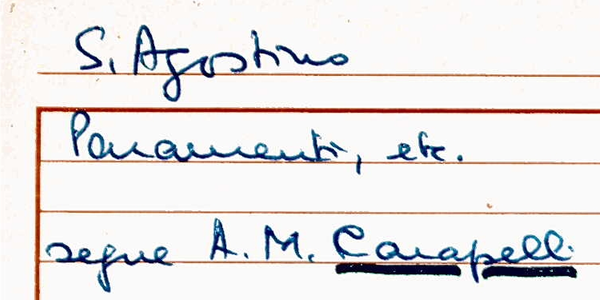 S. Agostino
Paramenti, etc.
segue A. M. Carapelli